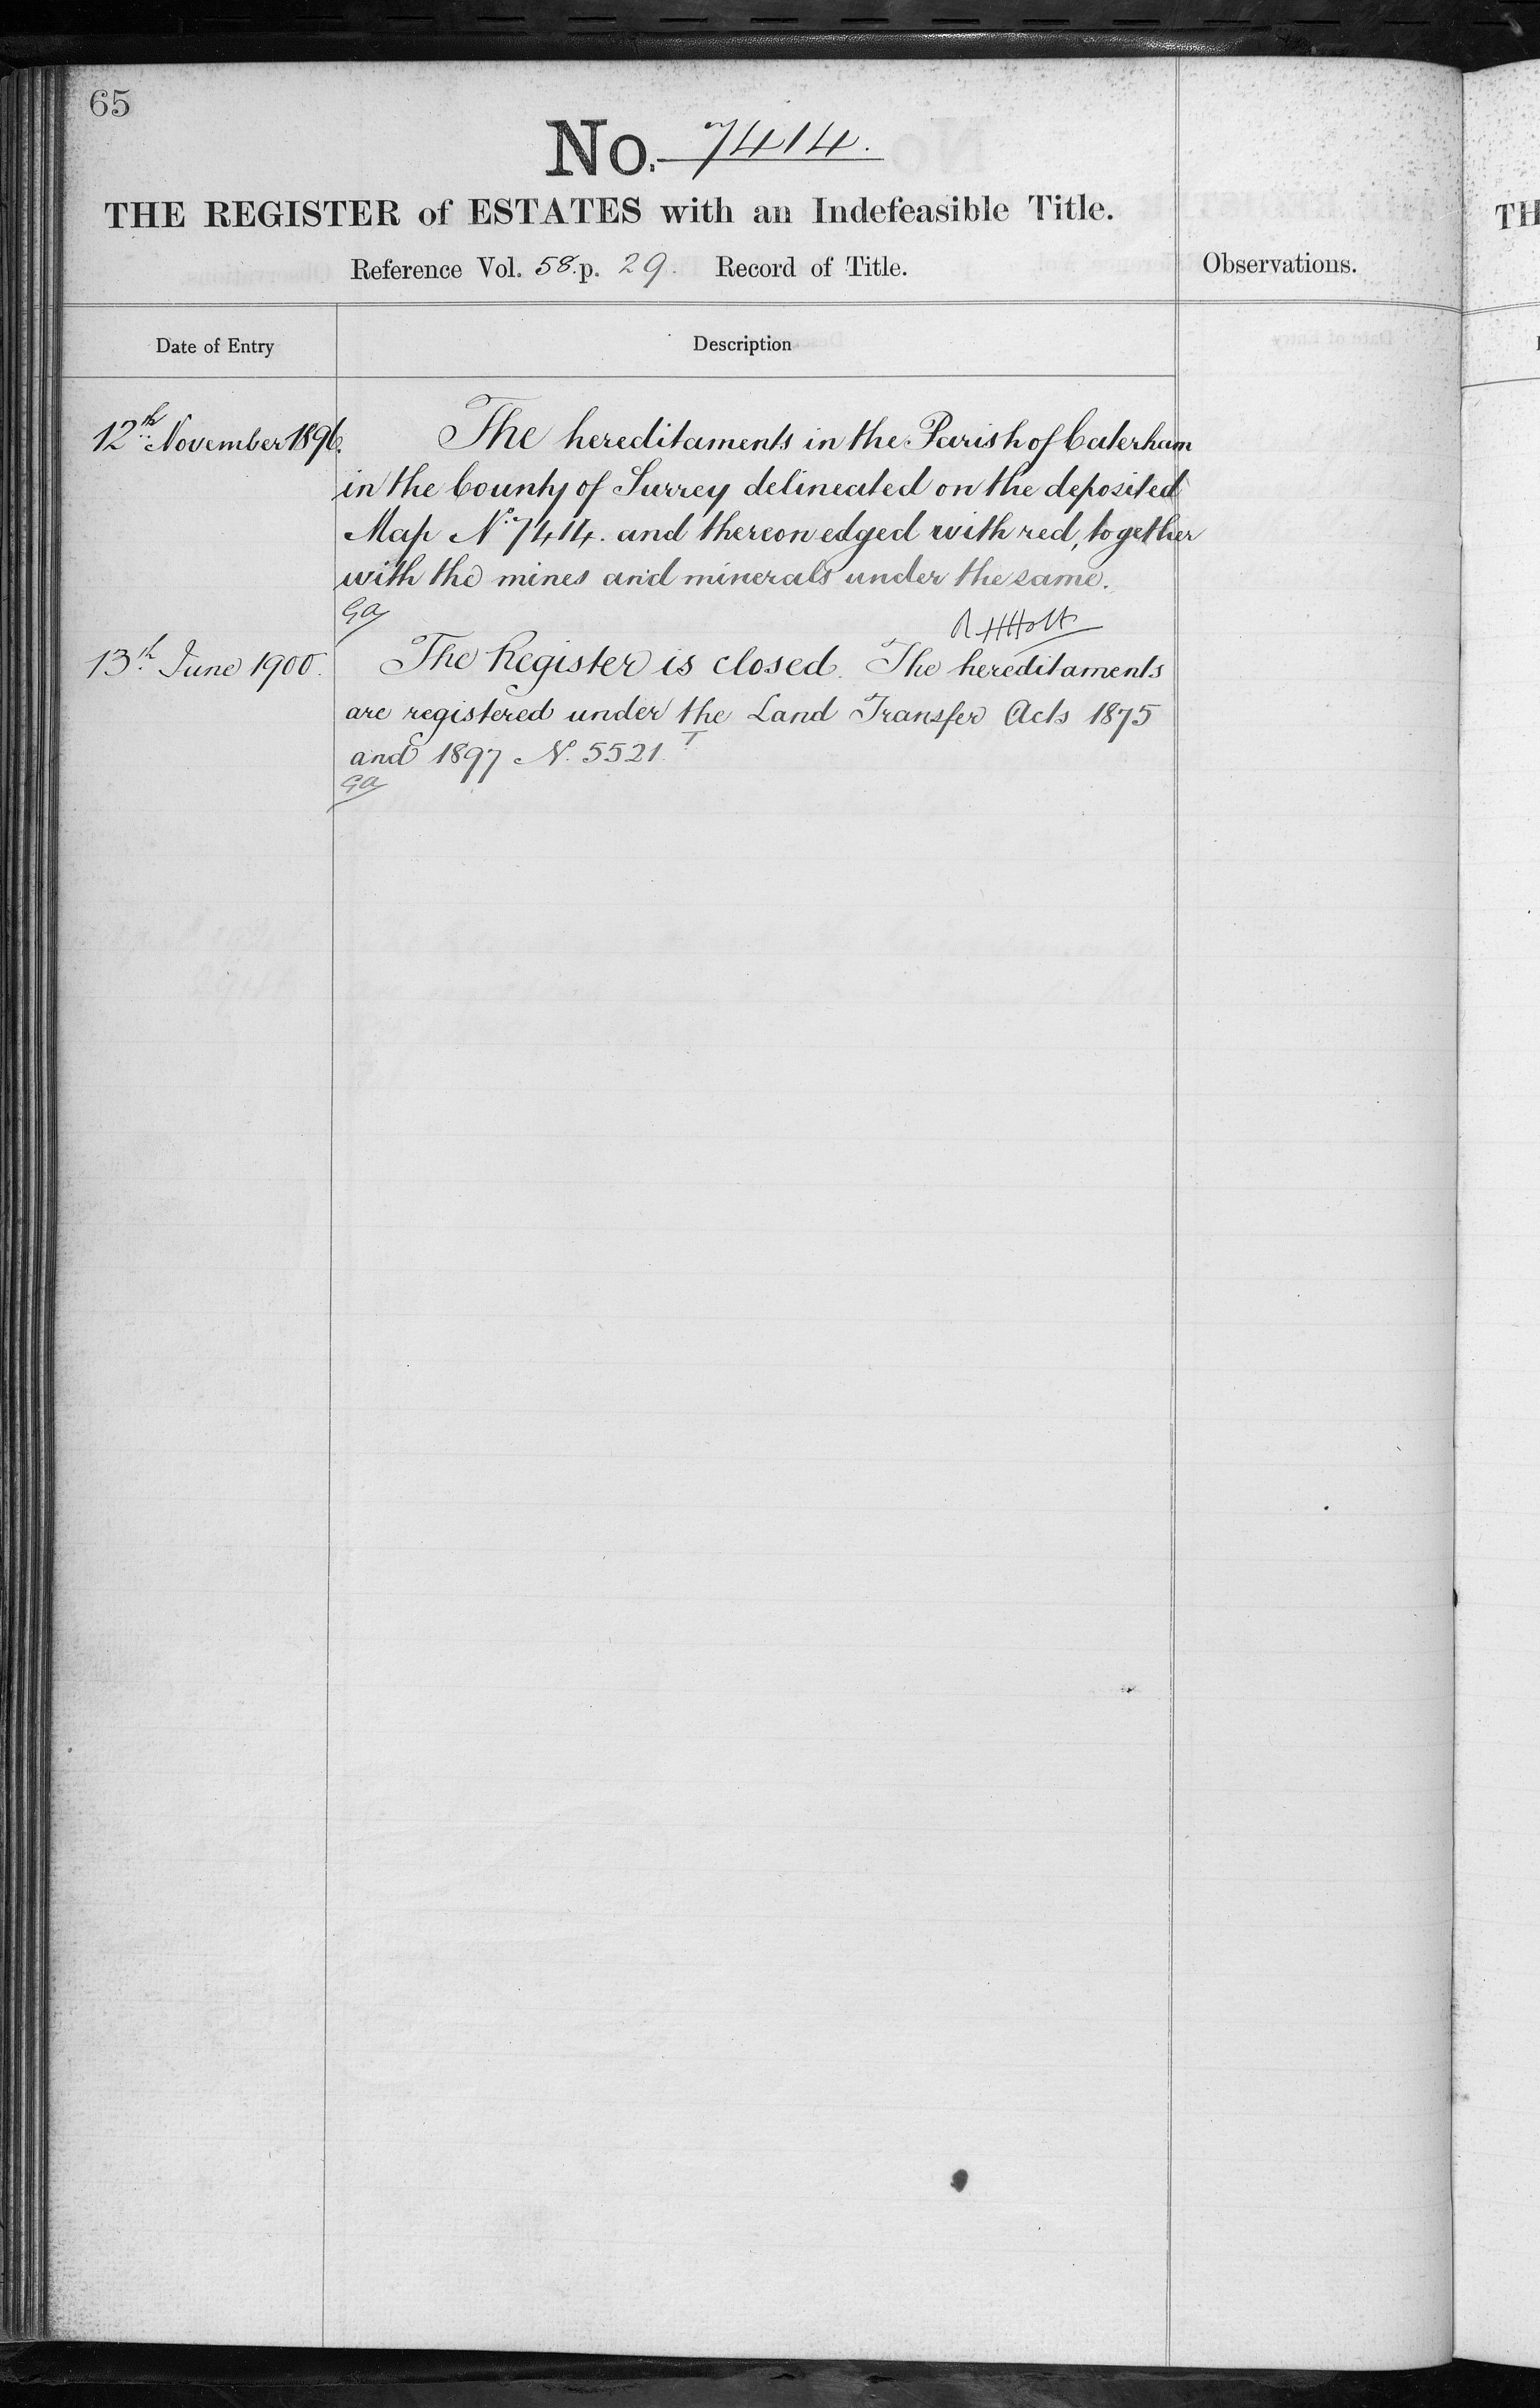 65
No. 7414.
THE REGISTER of ESTATES with an Indefeasible Title.
Reference Vol. 58. p. 29. Record of Title.
Observations.
Date of Entry
Description
12th November 1896.
The hereditaments in the Parish of Caterham
in the County of Surrey delineated on the deposited
Map No. 7414. and thereon edged with red, together
with the mines and minerals under the same.
GA
RHHolt
13th June 1900.
The Register is closed. The hereditaments
are registered under the Land Transfer Acts 1875
and 1897 No. 5521.
GA
TH